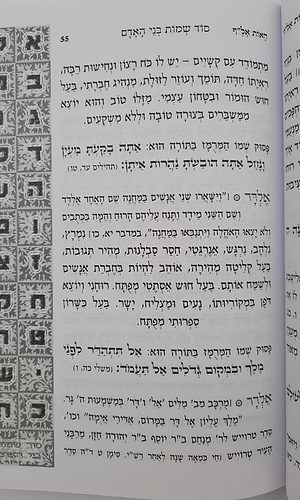 הָאוֹת אָלֶ"ף
סוֹד שְׁמוֹת בְּנֵי הָאָדָם
55
מִתְמוֹדֵד עִם קְשָׁיִים – יֵשׁ לוֹ כֹּחַ רָצוֹן וּנְחִישׁוּת רַבָּה,
רְאִיָּתוֹ חַדָּה, תּוֹמֵךְ וְעוֹזֵר לַזּוּלַת, מַנְהִיג חֶבְרָתִי, בַּעַל
חוּשׁ הוּמוֹר וּבִטָּחוֹן עַצְמִי. מַזָּלוֹ טוֹב וְהוּא יוֹצֵא
מִמַּשְׁבְּרִים בְּצוּרָה טוֹבָה וּלְלֹא מִשְׁקָעִים.
פָּסוּק שְׁמוֹ הַמְרֻמָּז בַּתּוֹרָה הוּא: אַתָּה בָקַעְתָּ מַעְיָן
וָנָחַל אַתָּה הוֹבַשְׁתָּ נַהֲרוֹת אֵיתָן: (תהילים עד, טו)
אֶלְדָּד ۞ "וַיִּשָּׁאֲרוּ שְׁנֵי אֲנָשִׁים בַּמַּחֲנֶה שֵׁם הָאֶחָד אֶלְדָּד
וְשֵׁם הַשֵּׁנִי מֵידָד וַתָּנַח עֲלֵיהֶם הָרוּחַ וְהֵמָּה בַּכְּתֻבִים
וְלֹא יָצְאוּ הָאֹהֱלָה וַיִּתְנַבְּאוּ בַּמַּחֲנֶה", (במדבר יא, כו) נִמְרָץ,
נִלְהָב, נִרְגָּשׁ, אֶנֶרְגֶּטִי, חֲסַר סַבְלָנוּת, מָהִיר תְּגוּבוֹת,
בַּעַל קְלִיטָה מְהִירָה, אוֹהֵב לִהְיוֹת בְּחֶבְרַת אֲנָשִׁים
וּלְשַׂמֵּחַ אוֹתָם. בַּעַל חוּשׁ אֶסְתֵּטִי מְפֻתָּח. רוּחָנִי וְיוֹצֵא
דֹּפֶן בִּמְקוֹרִיּוּתוֹ, נָעִים וּמַצְלִיחַ, יָשָׁר. בַּעַל כִּשְׁרוֹן
סִפְרוּתִי מְפֻתָּח.
פָּסוּק שְׁמוֹ הַמְרֻמָּז בַּתּוֹרָה הוּא: אַל תִּתְהַדַּר לִפְנֵי
מֶלֶךְ וּבִמְקוֹם גְּדֹלִים אַל תַּעֲמֹד: (משלי כה, ו)
אֶלְדָּר ۞ (מֻרְכָּב מב' מִלִּים 'אֵל' ו'דָר' בְּמַשְׁמָעוּת ה' גָּר.
"מֶלֶךְ עֶלְיוֹן אֵל דָּר בַּמָּרוֹם, אַדִּירֵי אֲיֻמָּה" וכו',